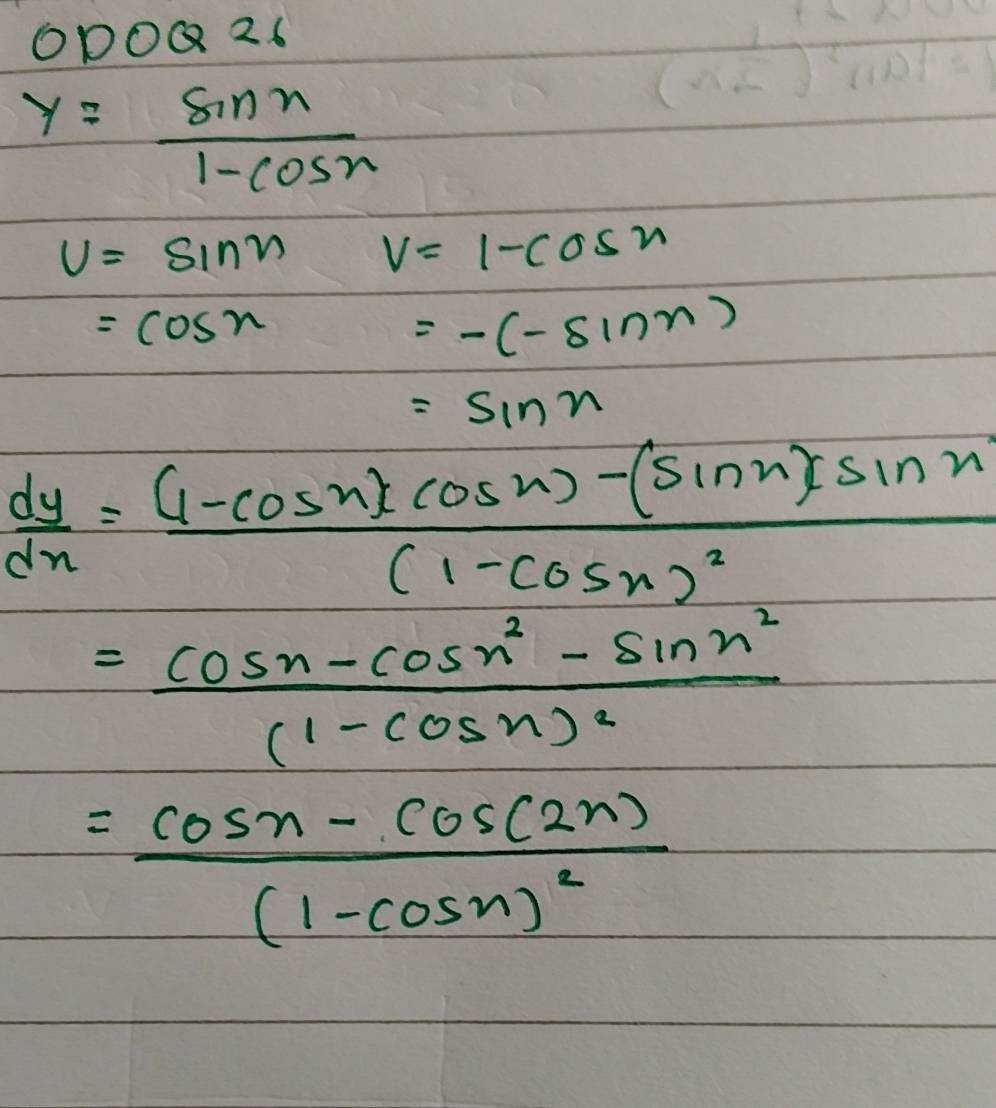 ODOQ 26
y = sin x
1 - cos x
U = sin x V = 1 - cos x
= cos x = -(-sin x)
= sin x
dy = (1 - cos x)(cos x) - (sin x)(sin x
dx (1 - cos x)²
= cos x - cos x² - sin x²
(1 - cos x)²
= cos x - cos(2x)
(1 - cos x)²